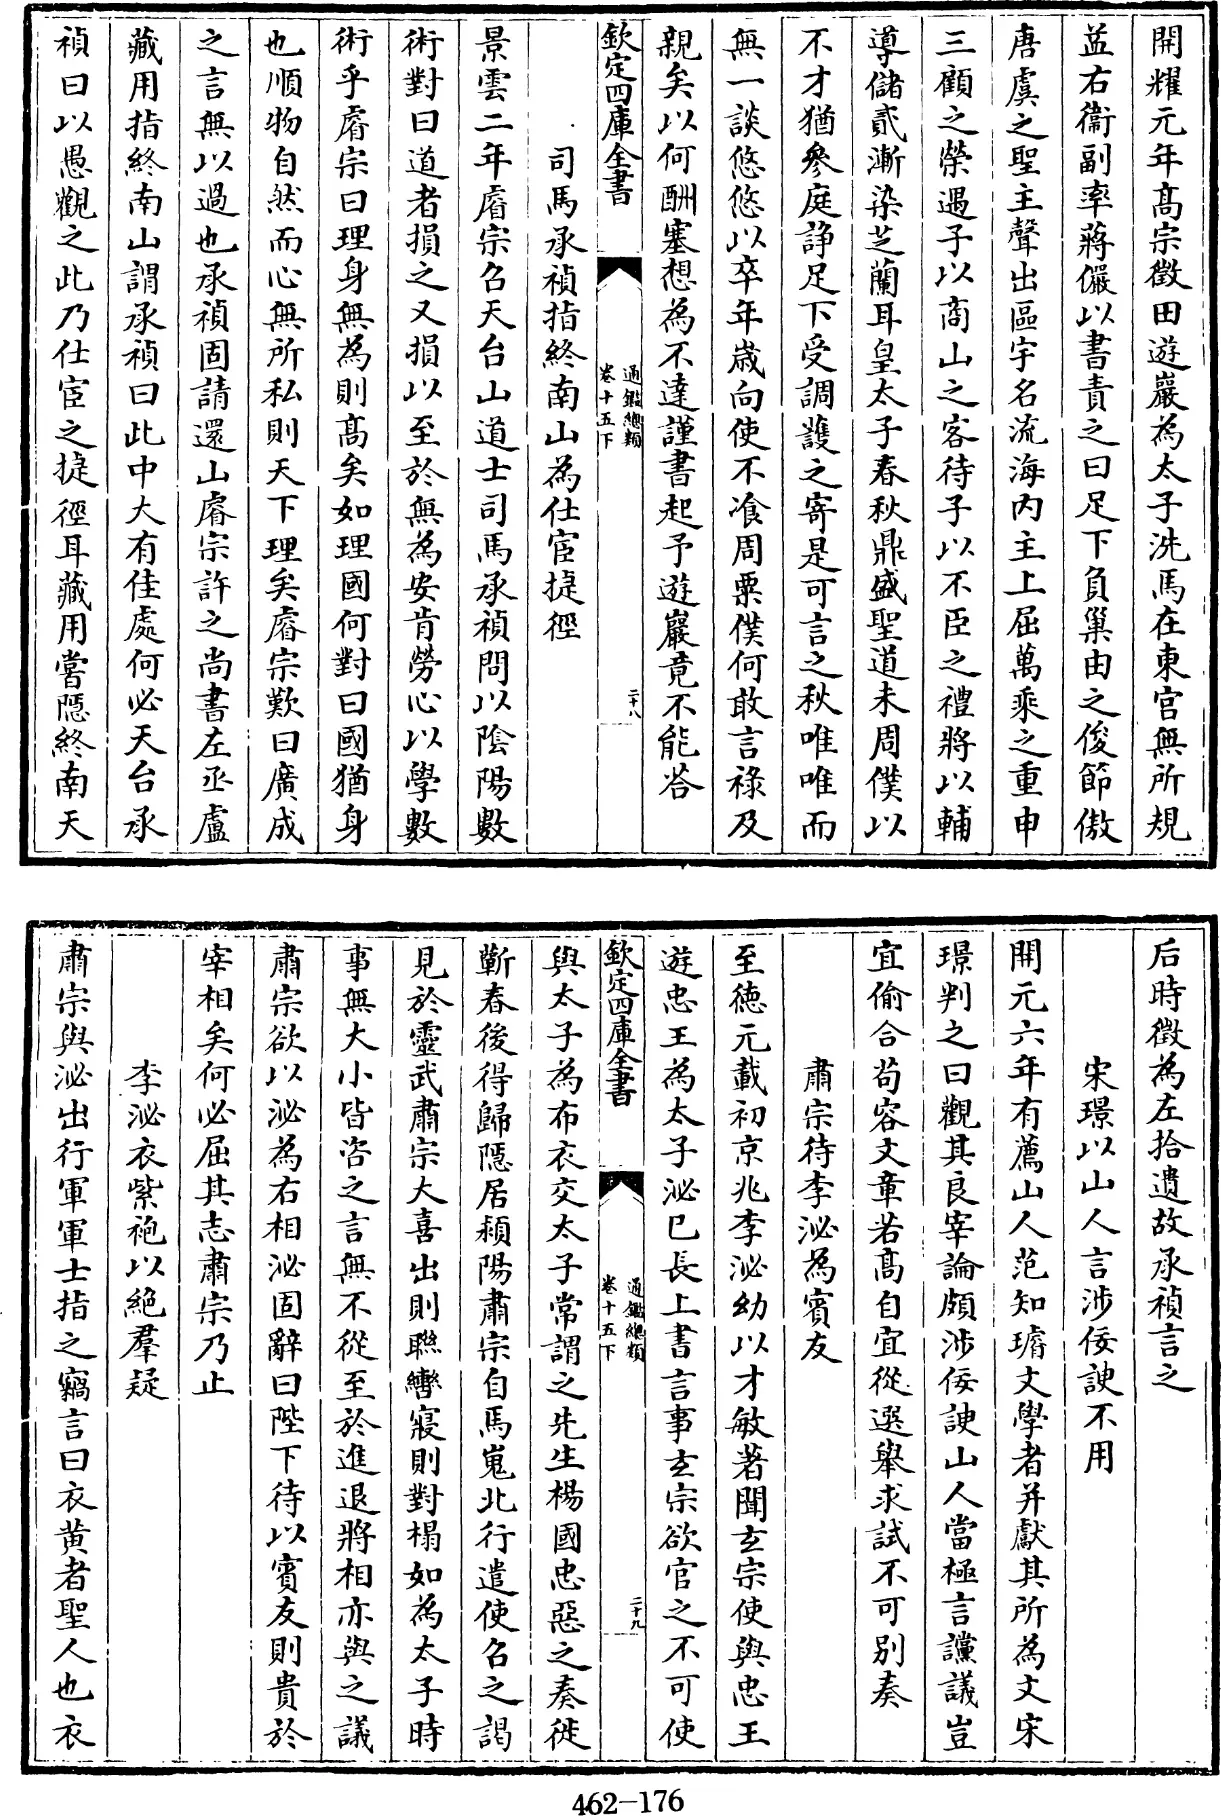 開耀元年髙宗徵田遊巖為太子洗馬在東宫無所規
益右衞副率蔣儼以書責之曰足下負巢由之俊節傲
唐虞之聖主聲出區宇名流海内主上屈萬乘之重申
三顧之榮遇子以商山之客待子以不臣之禮將以輔
導儲貳漸染芝蘭耳皇太子春秋鼎盛聖道未周僕以
不才猶參庭諍足下受調護之寄是可言之秋唯唯而
無一談悠悠以卒年歳向使不飡周粟僕何敢言祿及
親矣以何酬塞想為不達謹書起予遊巖竟不能答
欽定四庫全書
通鑑總類
卷十五下
二十八
司馬承禎指終南山為仕宦捷徑
景雲二年睿宗召天台山道士司馬承禎問以隂陽數
術對曰道者損之又損以至於無為安肯勞心以學數
術乎睿宗曰理身無為則髙矣如理國何對曰國猶身
也順物自然而心無所私則天下理矣睿宗歎曰廣成
之言無以過也承禎固請還山睿宗許之尚書左丞盧
藏用指終南山謂承禎曰此中大有佳處何必天台承
禎曰以愚觀之此乃仕宦之捷徑耳藏用嘗隠終南天
后時徵為左拾遺故承禎言之
宋璟以山人言涉佞諛不用
開元六年有薦山人范知璿文學者并獻其所為文宋
璟判之曰觀其良宰論頗涉佞諛山人當極言讜議豈
宜偷合茍容文章若髙自宜從選舉求試不可别奏
肅宗待李泌為賓友
至德元載初京兆李泌幼以才敏著聞𤣥宗使與忠王
遊忠王為太子泌已長上書言事𤣥宗欲官之不可使
欽定四庫全書
通鑑總類
卷十五下
二十九
與太子為布衣交太子常謂之先生楊國忠惡之奏徙
蘄春後得歸隠居潁陽肅宗自馬嵬北行遣使召之謁
見於靈武肅宗大喜出則聯轡寢則對榻如為太子時
事無大小皆咨之言無不從至於進退將相亦與之議
肅宗欲以泌為右相泌固辭曰陛下待以賓友則貴於
宰相矣何必屈其志肅宗乃止
李泌衣紫袍以絶羣疑
肅宗與泌出行軍軍士指之竊言曰衣黄者聖人也衣
462-176